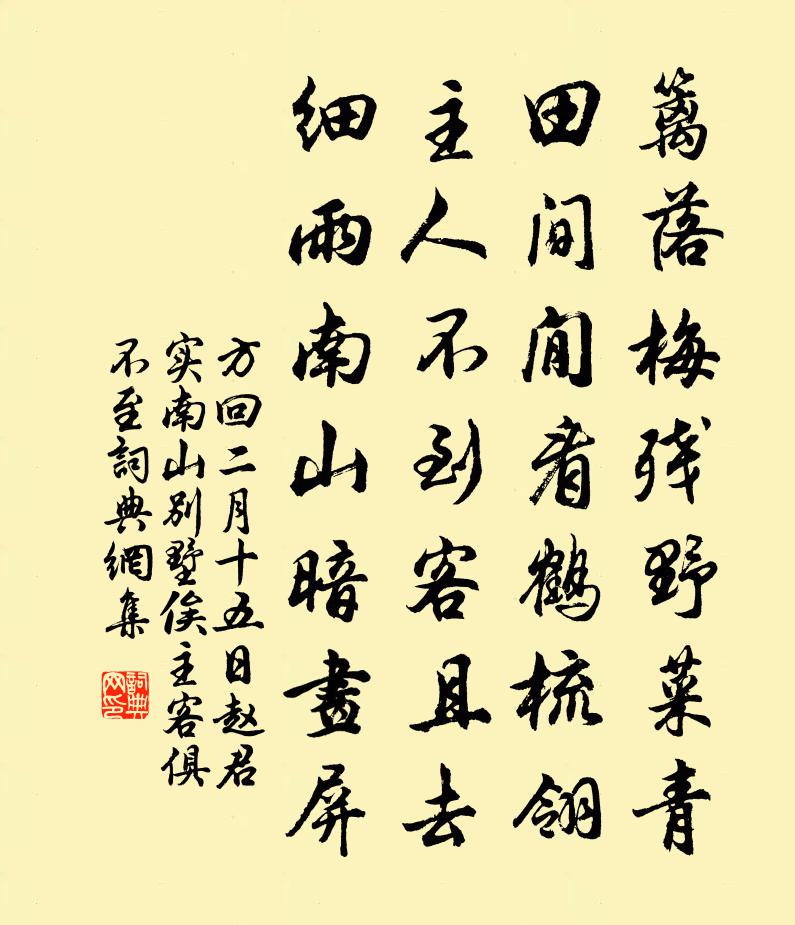 篱落梅残野菜青
田间闲看鹤梳翎
主人不到客且去
细雨南山暗畫屏
方回二月十五日赵君
实南山别墅俟主客俱
不至詞典網集
詞典
网印